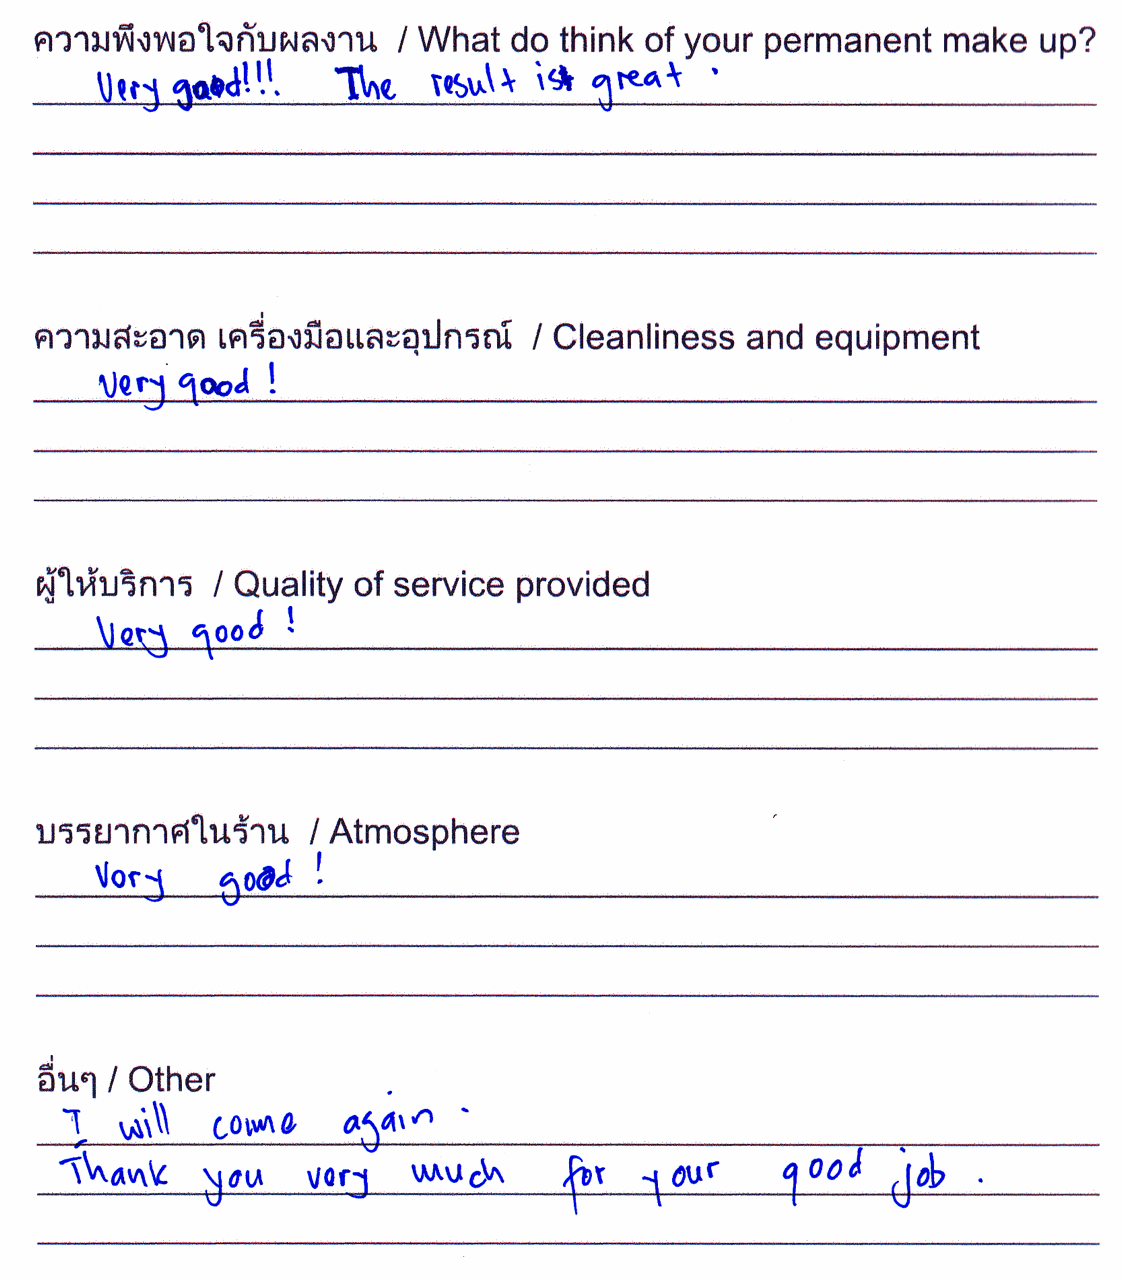 ความพึงพอใจกับผลงาน / What do think of your permanent make up?
Very good!!! The result is great.
ความสะอาด เครื่องมือและอุปกรณ์ / Cleanliness and equipment
Very good!
ผู้ให้บริการ / Quality of service provided
Very good!
บรรยากาศในร้าน / Atmosphere
Very good!
อื่นๆ / Other
I will come again.
Thank you very much for your good job.